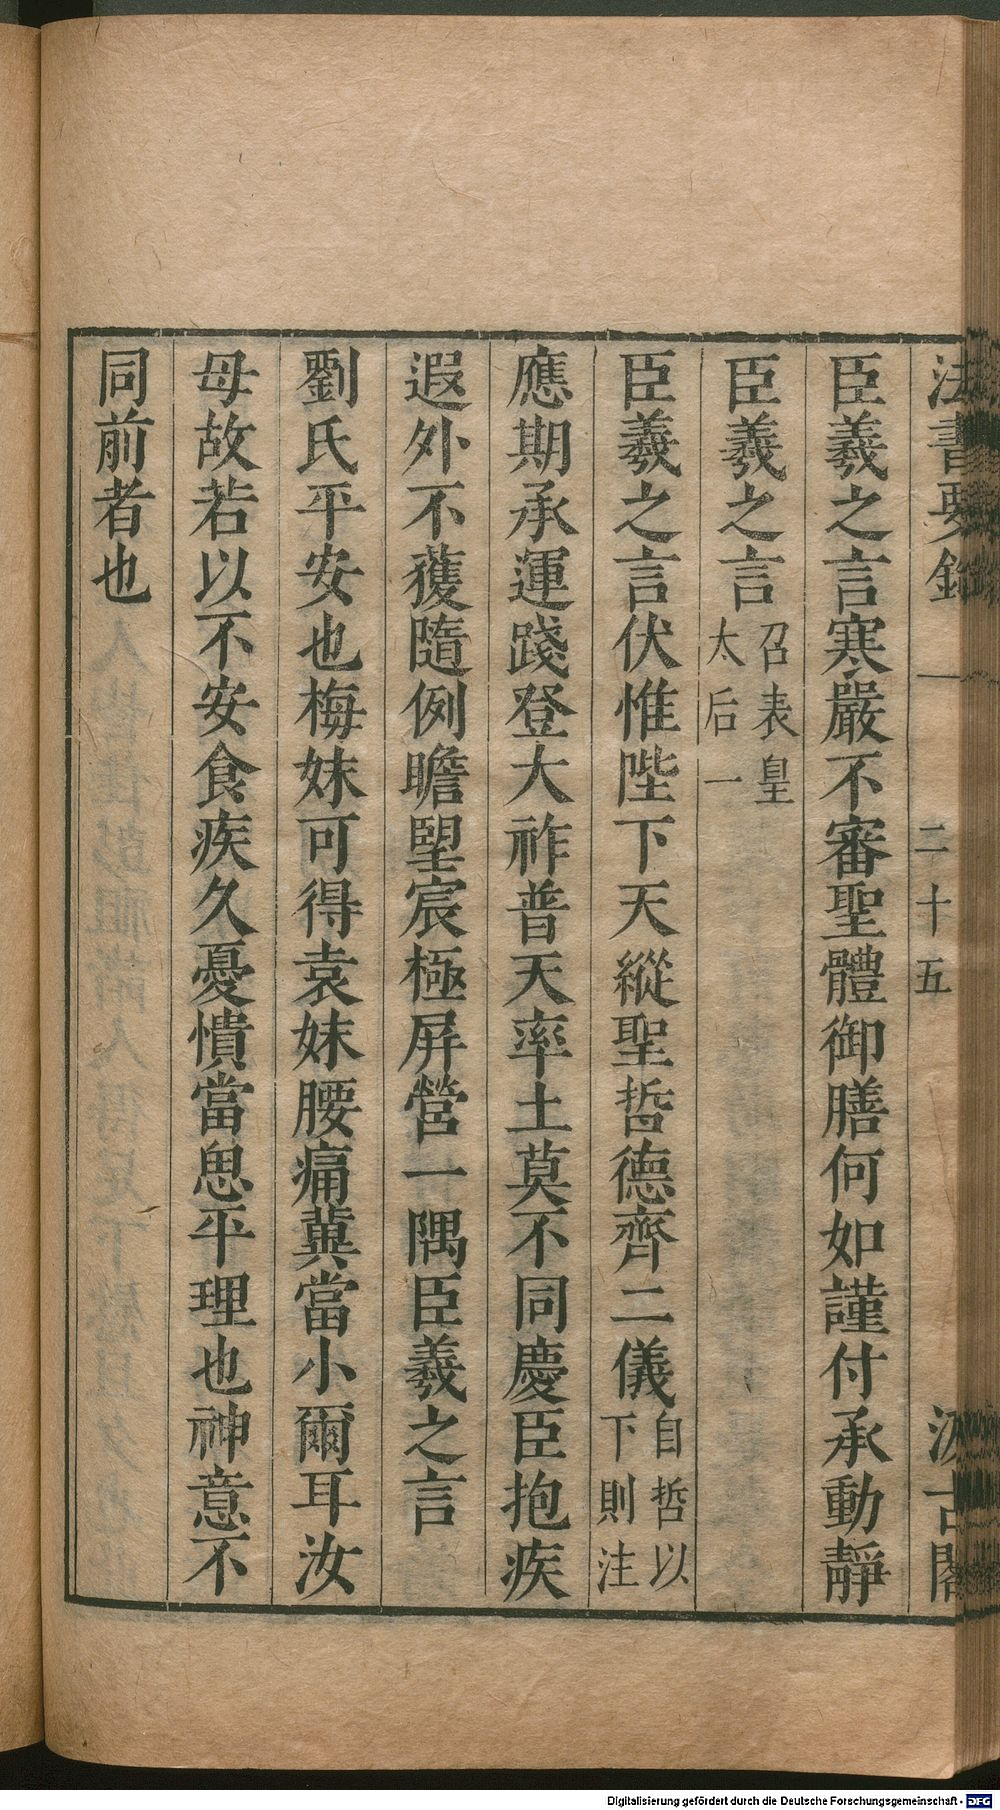 法書要錄 一 二十五 汲古閣
臣羲之言寒嚴不審聖體御膳何如謹付承動靜
臣羲之言召表皇太后一
臣羲之言伏惟陛下天縱聖哲德齊二儀自哲以下則注
應期承運踐登大祚普天率土莫不同慶臣抱疾
遐外不獲隨例瞻望宸極屏營一隅臣羲之言
劉氏平安也梅妹可得袁妹腰痛冀當小爾耳汝
母故若以不安食疾久憂憒當思平理也神意不
同前者也
Digitalisierung gefördert durch die Deutsche Forschungsgemeinschaft - DFG